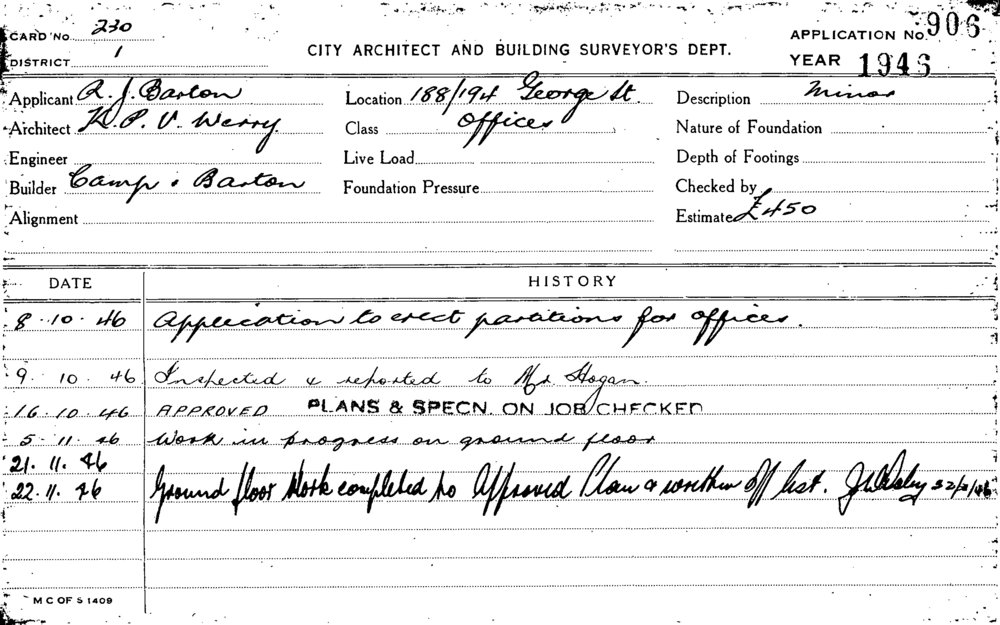 CARD No 230
DISTRICT 1
CITY ARCHITECT AND BUILDING SURVEYOR'S DEPT.
APPLICATION No. 906
YEAR 1946
Applicant R. J. Barton
Architect K. P. V. Werry
Engineer
Builder Camp & Barton
Alignment
Location 188/194 George St.
Class Offices
Live Load
Foundation Pressure
Description Minor
Nature of Foundation
Depth of Footings
Checked by
Estimate £450
DATE HISTORY
8.10.46 Application to erect partitions for offices.
9.10.46 Inspected & reported to Mr Hogan.
16.10.46 APPROVED PLANS & SPECN. ON JOB CHECKED
5.11.46 Work in progress on ground floor
21.11.46
22.11.46 Ground floor Work completed to Approved Plan & written Off list.
M C OF S 1409